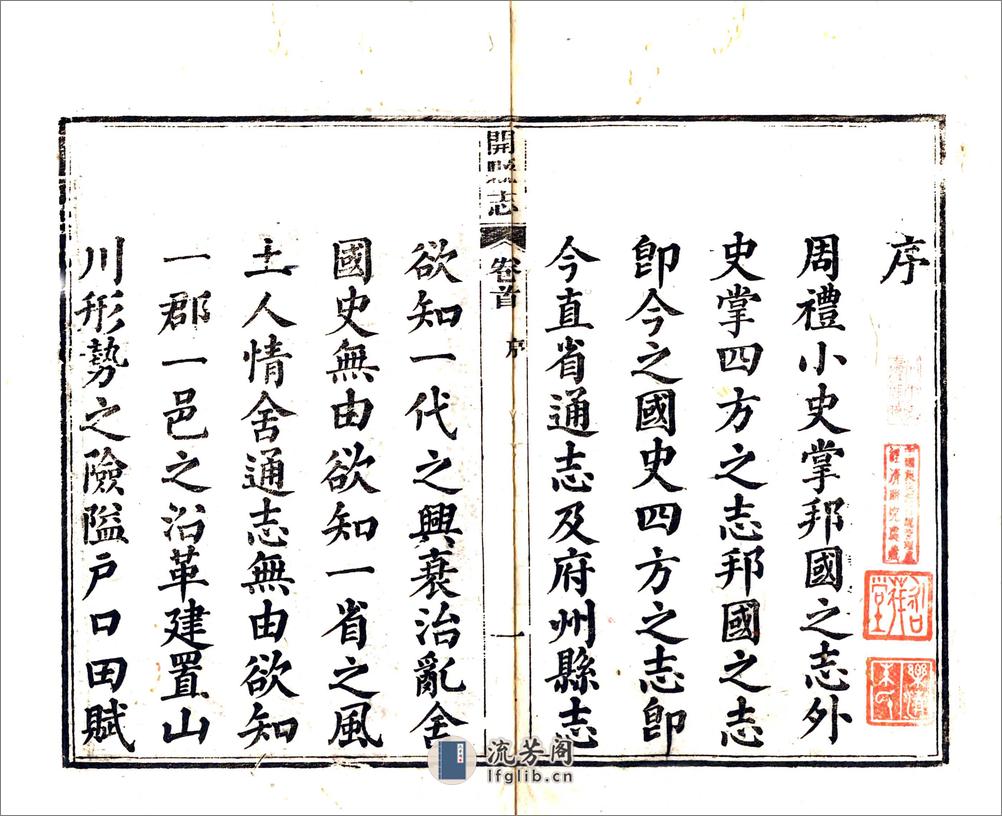 序
周禮小史掌邦國之志外
史掌四方之志邦國之志
卽今之國史四方之志卽
今直省通志及府州縣志
開縣志
卷首
序
一
欲知一代之興衰治亂舍
國史無由欲知一省之風
土人情舍通志無由欲知
一郡一邑之沿革建置山
川形勢之險隘戶口田賦
流芳阁
lfglib.cn